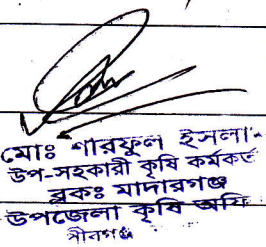 মোঃ শারফুল ইসলা
উপ-সহকারী কৃষি কর্মকর্ত
ব্লকঃ মাদারগঞ্জ
উপজেলা কৃষি অফি